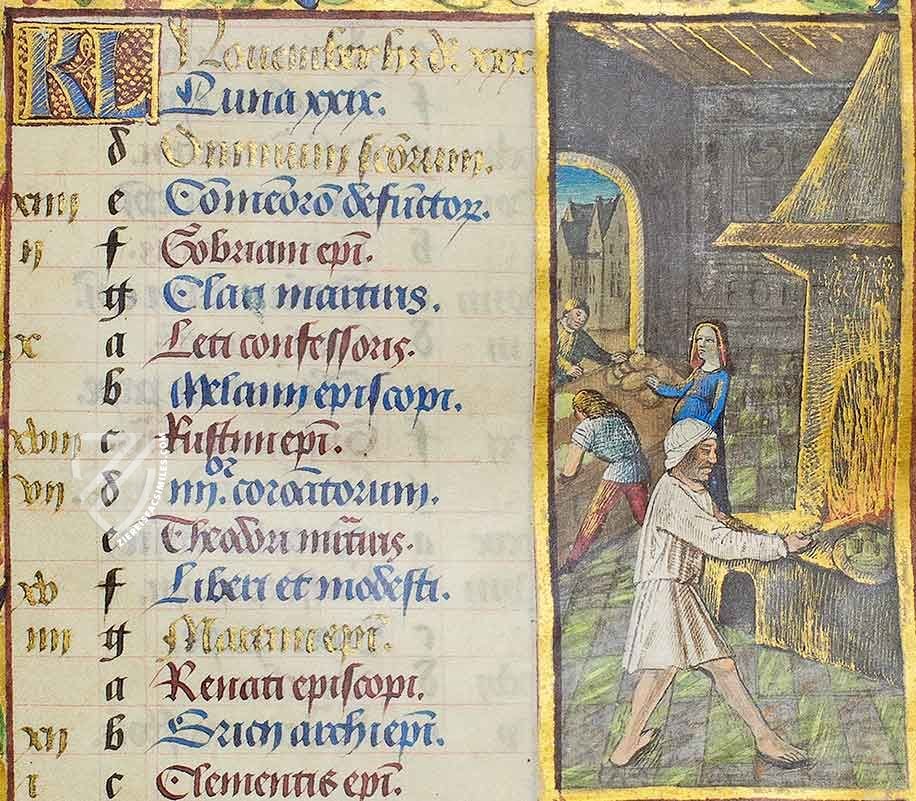 KL Nouember h3 d. xxx
Luna xxix.
d Omnium scorum.
xiii e Comemoro defunctor.
ii f Gobriani epi.
g Clari martiris.
x a Leti confessoris.
b Melanii episcopi.
xviii c Rustini epi.
vii d iiii.or coronatorum.
e Theodori mrtiris.
xv f Liberi et modesti.
iiii g Martini epi.
a Renati episcopi.
xii b Bricii archiepi.
i c Clementis epi.
ZIEREIS FACSIMILES.COM